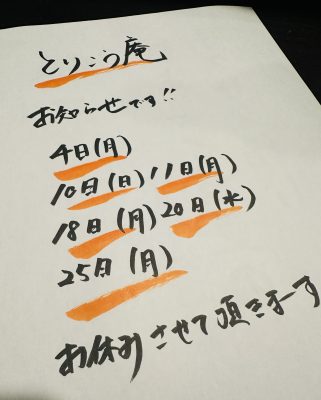 とりこう庵
お知らせです!!
4日(月)
10日(日)11日(月)
18日(月)20日(水)
25日(月)
お休みさせて頂きまーす